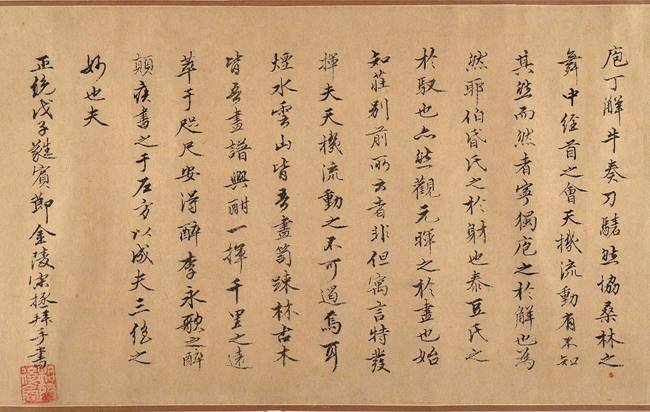 庖丁解牛奏刀騞然協桑林之
舞中经首之會天機流動有不知
其然而然者寧獨庖之於解也為
然耶伯昏氏之於射也泰豆氏之
於馭也亦然觀元暉之於畫也始
知莊列前所云者非但寓言特發
揮夫天機流動之不可遏焉耳
煙水雲山皆吾畫笥踈林古木
皆吾畫譜興酣一揮千里之遠
萃于咫尺安得醉李永歌之醉
顛疾書之于左方以成夫三絶之
妙也夫
正统戊子蕤賓節金陵宋拯拜手書